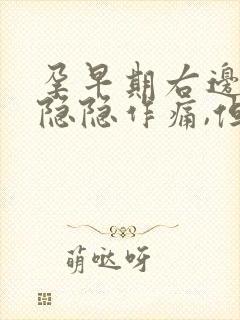 孕早期右邊
隐隐作痛,但
萌哒呀